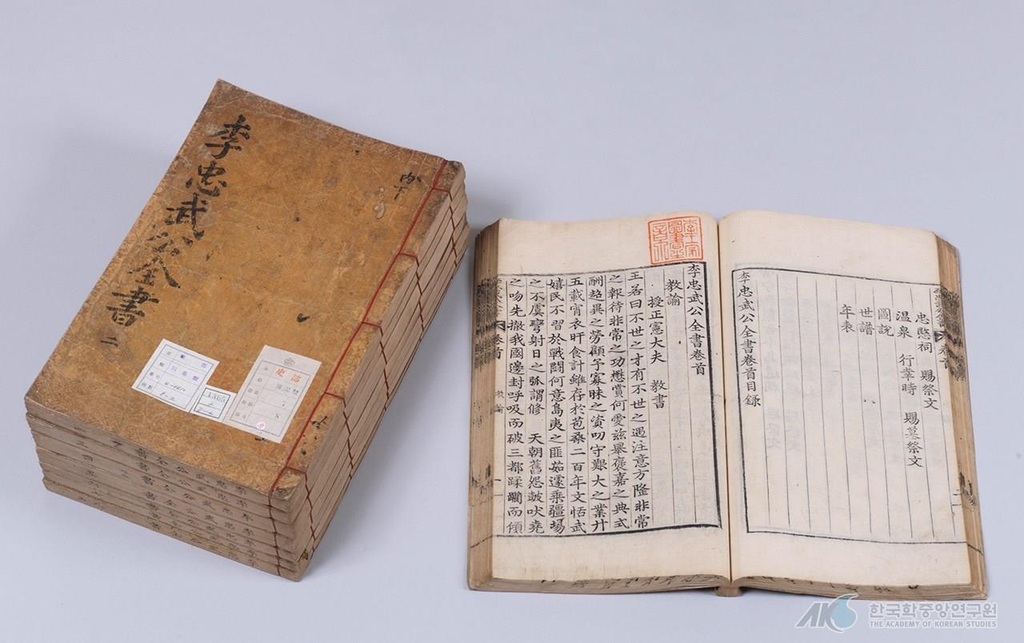 李忠武公全書 二
忠愍祠 賜祭文
温泉 行幸時 賜墓祭文
圖說
世譜
年表
李忠武公全書卷首目録
李忠武公全書卷首
教諭
授正憲大夫 教書
王若曰不世之才有不世之遇注意方隆非常
之報待非常之功懋賞何愛玆舉褒嘉之典式
酬超異之勞顧予寡昧之資叨守艱大之業廿
五載宵衣旰食計雖存於苞桑二百年文恬武
嬉民不習於戰鬪何意島夷之匪茹遽乘疆埸
之不虞彎射日之弧謂修 天朝舊怨鼓吠堯
之吻先撤我國邊封呼吸而破三都蹂躪而傾
卷首
AKS 한국학중앙연구원
THE ACADEMY OF KOREAN STUDIES